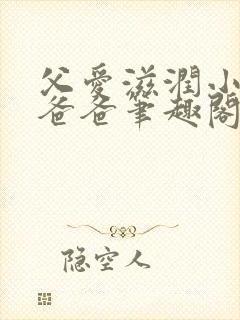 父愛滋潤小
爸爸筆趣閣
隐空人